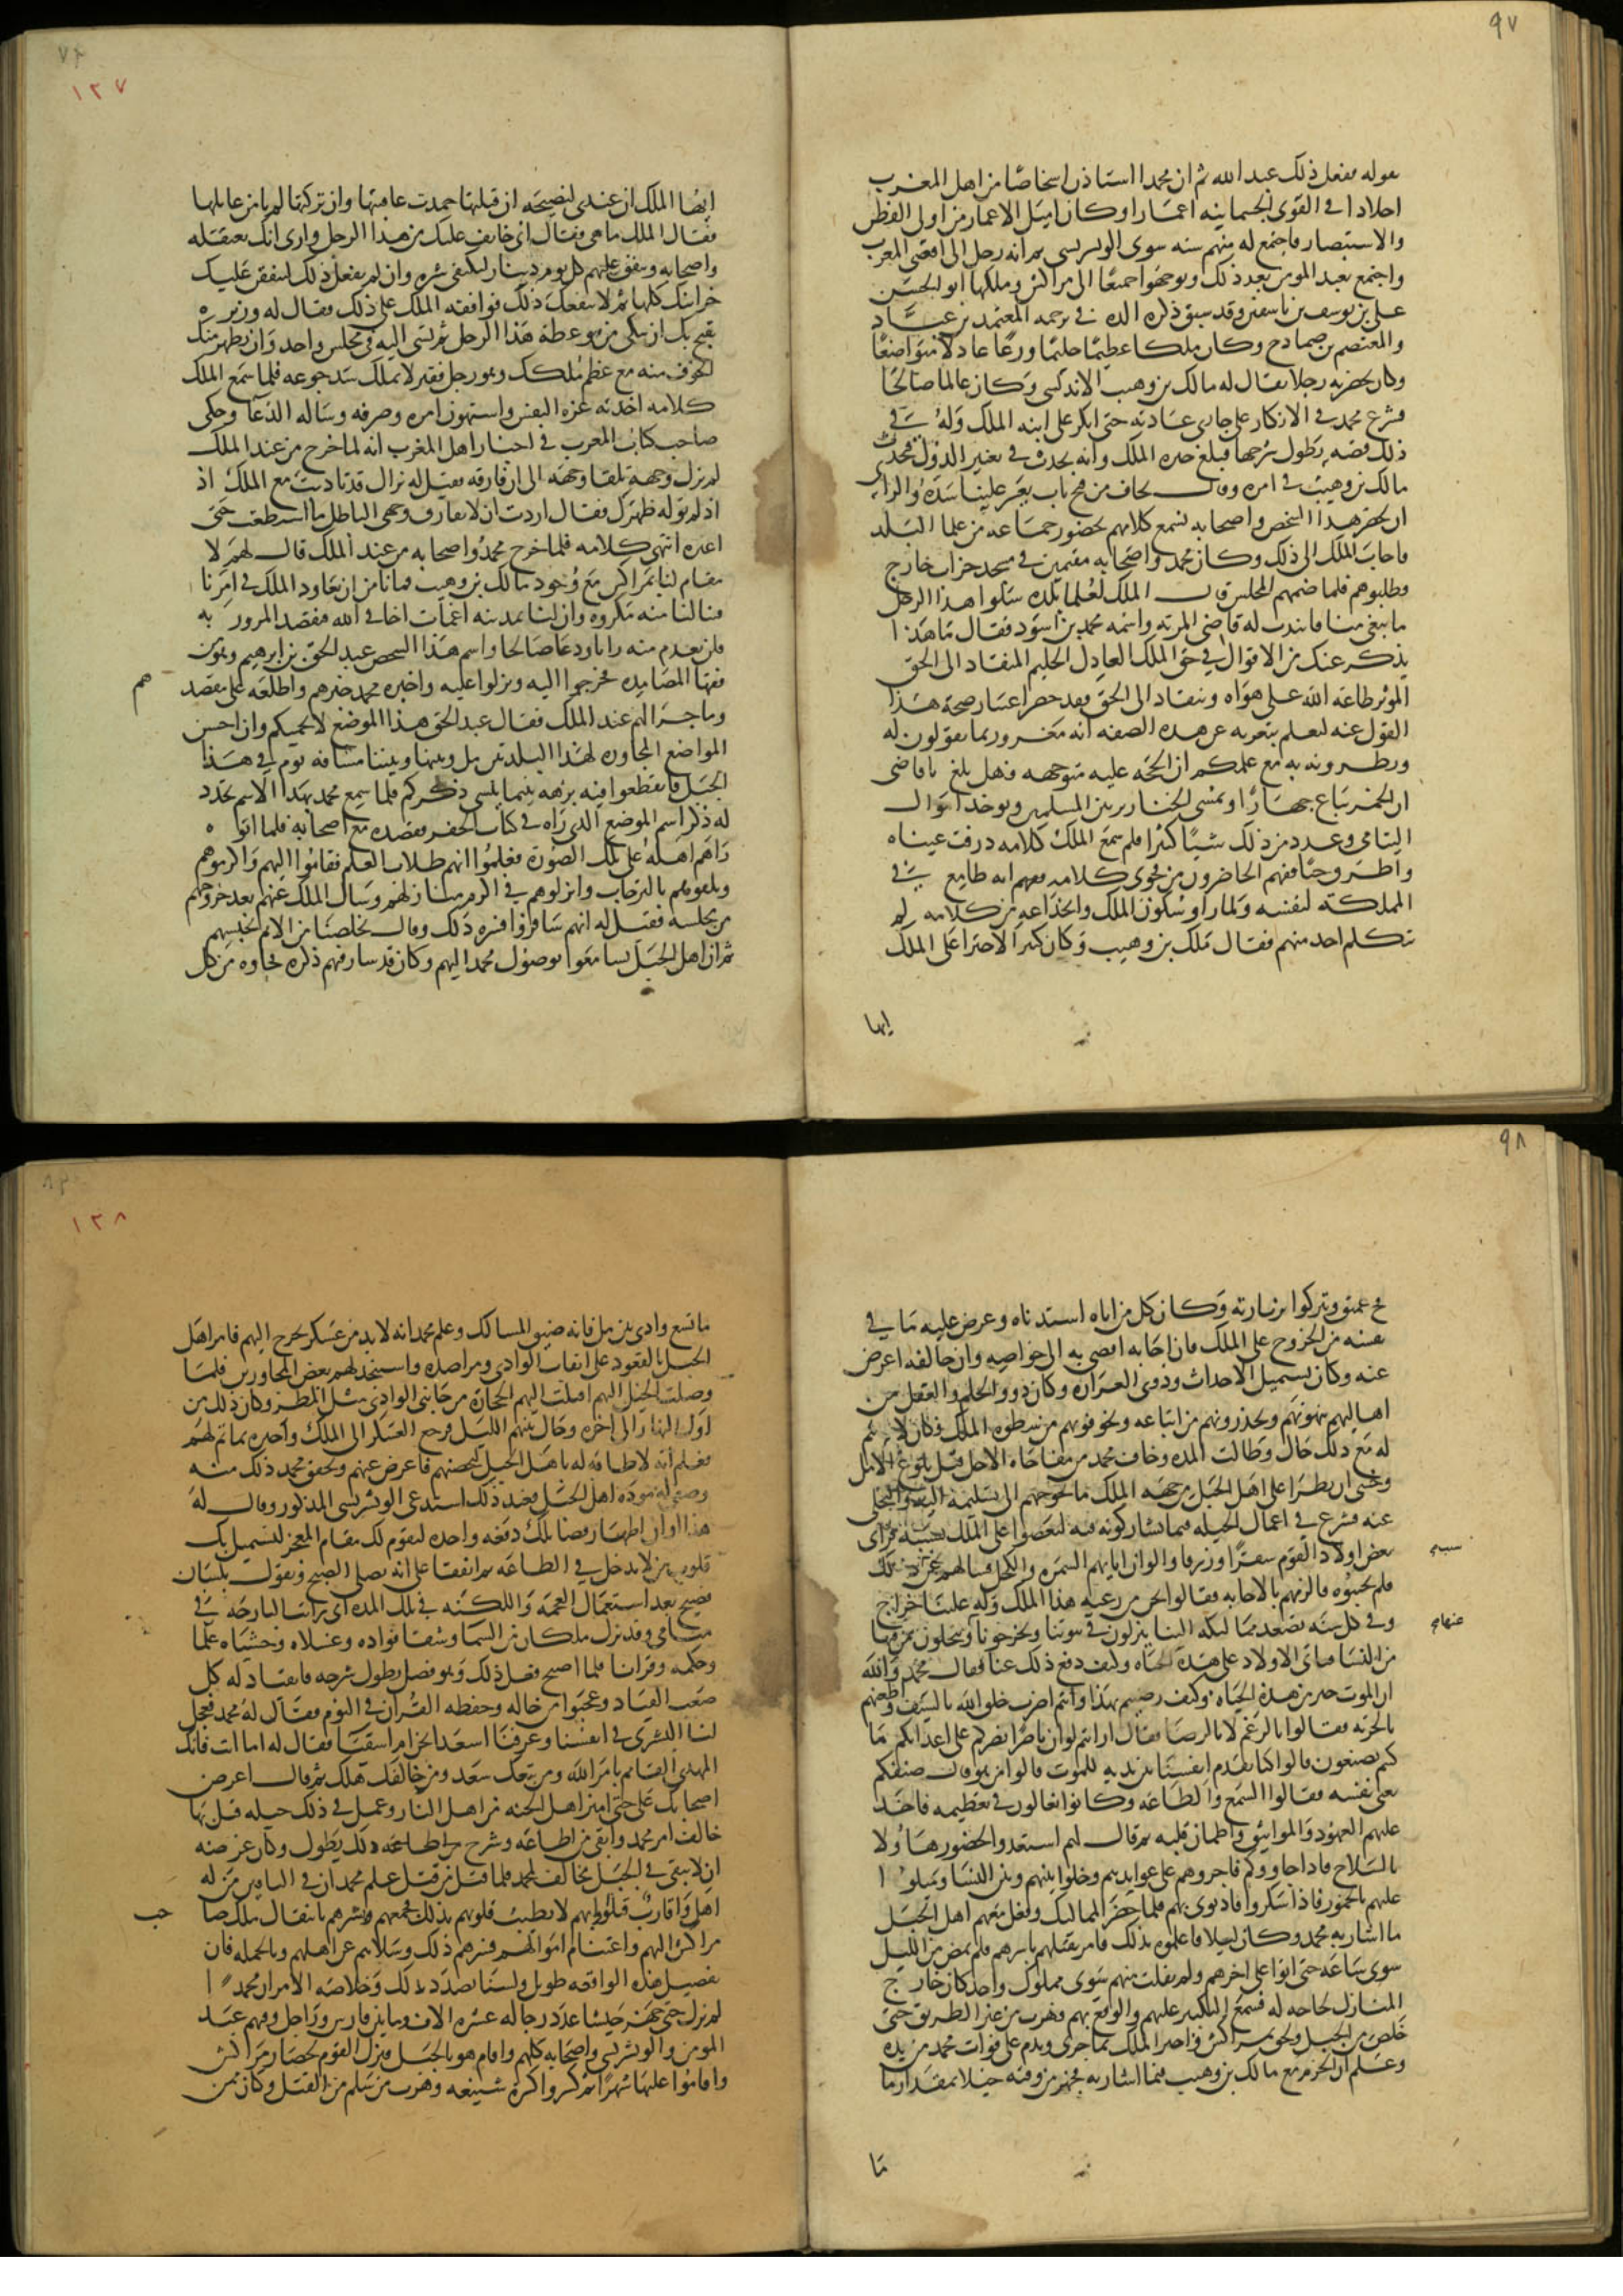 ٩٧
بقوله ففعل ذلك عبد الله ثم ان محمدا استاذن اشخاصا من اهل المغرب
اجلادا في القوى الجسمانية اغمارا وكان اميل الاغمار من اولى الفطن
والاستبصار فاجتمع له منهم ستة سوى الونشريسي ثم انه رحل الى اقصى المغرب
واجتمع بعبد المومن بعد ذلك وتوجهوا جميعا الى مراكش وملكها ابو الحسن
على بن يوسف بن تاشفين وقد سبق ذكر والده في ترجمة المعتمد بن عباد
والمعتصم بن صمادح وكان ملكا عظيما حليما ورعا عادلا متواضعا
وكان بحضرته رجل يقال له مالك بن وهيب الاندلسي وكان عالما صالحا
فشرع محمد في الانكار على جارى عادته حتى انكر على ابنة الملك وله في
ذلك قصة يطول شرحها فبلغ خبره الملك وانه يحدث في تغيير الدولة فتحدث
مالك بن وهيب في امره وقال نخاف من فتح باب يعسر علينا سده والراى
ان يحضر هذا الشخص واصحابه لنسمع كلامهم بحضور جماعة من علما البلد
فاجاب الملك الى ذلك وكان محمد واصحابه مقيمين في مسجد خراب خارج
وطلبوهم فلما ضمهم المجلس قال الملك لعلما بلده سلوا هذا الرجل
ما يبغى منا فانتدب له قاضى المرية واسمه محمد بن اسود فقال ما هذا
يذكر عنك من الاقوال في حق الملك العادل الحليم المنقاد الى الحق
الموثر طاعة الله على هواه
القول عنه ليعلم بتعريه عن هذه الصفة انه مغرور بما تقولون له
وتطرونه به مع علمكم ان الحجة عليه متوجهه فهل بلغك يا قاضى
ان الخمر تباع جهارا وتمشى الخنازير بين المسلمين وتوخذ اموال
اليتامى وعدد من ذلك شيئا كثيرا فلم سمع الملك كلامه درفت عيناه
واطرق حيا ففهم الحاضرون من فحوى كلامه انه طامع في
المملكة لنفسه ولما راوا سكوت الملك وانخداعه من كلامه لم
يتكلم احد منهم فقال ملك بن وهيب وكان كثير الاجترا على الملك
ايها
١٢٧
ايها الملك ان عندى لنصيحة ان قبلتها حمدت عاقبتها وان تركتها لم تامن غايلتها
فقال الملك ما هى فقال انى خايف عليك من هذا الرجل وارى انك تعتقله
واصحابه وتنفق عليهم كل يوم دينارا لتكفى شره وان لم تفعل ذلك لتنفقن عليك
خزاينك كلها ثم لا ينفعك ذلك فوافقه الملك على ذلك فقال له وزيره
يقبح بك ان تبكى من موعظة هذا الرجل ثم تسى اليه في مجلس واحد وان يظهر منك
الخوف منه مع عظم ملكك وهو رجل فقير لا يملك سد جوعه فلما سمع الملك
كلامه اخذته عزة النفس واستهون امره وصرفه وساله الدعا وحكى
صاحب كتاب المعرب في اخبار اهل المغرب انه لما خرج من عند الملك
لم يزل وجهه تلقا وجهه الى ان فارقه فقيل له نراك قد تادبت مع الملك اذ
اذ لم توله ظهرك فقال اردت ان لا يفارق وجهى الباطل ما استطعت حتى
اغيره انتهى كلامه فلما خرج محمد واصحابه من عند الملك قال لهم لا
مقام لنا بمراكش مع وجود مالك بن وهيب فما نامن ان يعاود الملك في امرنا
فينالنا منه مكروه وان لنا بمدينة اغمات اخا في الله فنقصد المرور به
فلن نعدم منه رايا ودعا صالحا واسم هذا الشخص عبد الحق بن ابرهيم وهو من
فقها المصامدة فخرجوا اليه ونزلوا عليه واخبره محمد خبرهم واطلعه على مقصد
هم
وما جرا لهم عند الملك فقال عبد الحق هذا الموضع لا يحميكم وان احسن
المواضع المجاورة لهذا البلد تين مل وبينها وبيننا مسافة يوم في هذا
الجبل فانقطعوا فيه برهة ريثما ينسى ذكركم فلما سمع محمد بهذا الاسم تجدد
له ذكر اسم الموضع الذى راه في كتاب الجفر فقصده مع اصحابه فلما اتوا
راهم اهله على تلك الصورة فعلموا انهم طلاب العلم فقاموا اليهم واكرموهم
وتلقوهم بالترحاب وانزلوهم في اكرم منازلهم وسال الملك عنهم بعد خروجهم
من مجلسه فقيل له انهم سافروا فسره ذلك وقال تخلصنا من الاثم بحبسهم
ثم ان اهل الجبل تسامعوا بوصول محمد اليهم وكان قد سار فيهم ذكره فجاوه من كل
٩٨
فج عميق وتبركوا بزيارته وكان كل من اتاه استدناه وعرض عليه ما في
نفسه من الخروج على الملك فان اجابه اضافه الى خواصه وان خالفه اعرض
عنه وكان يستميل الاحداث وذوى الغرارة وكان ذوو الحلم والعقل من
اهاليهم ينهونهم ويحذرونهم من اتباعه ويخوفونهم من سطوة الملك فكان لا يتم
له مع ذلك حال وطالت المدة وخاف محمد من مفاجاة الاجل قبل بلوغ الامل
وخشى ان يطرا على اهل الجبل من جهة الملك ما يحوجهم الى تسليمه اليه والتخلى
عنه فشرع في اعمال الحيلة فيما يشاركونه فيه ليعصوا على الملك بسببه فراى
بعض اولاد القوم شقرا زرقا والوان ابايهم السمرة والكحل فسالهم عن ذلك
سببه
فلم يجيبوه فالزمهم بالاجابة فقالوا نحن من رعية هذا الملك وله علينا خراج
وفي كل سنة تصعد مماليكه الينا ينزلون في بيوتنا ويخرجونا ويخلون بمن فيها
عنها
من النسا فتاتى الاولاد على هذه الصفة وما لنا قدرة على دفع ذلك عنا فقال محمد والله
ان الموت خير من هذه الحياة وكيف رضيتم بهذا وانتم اضرب خلق الله بالسيف واطعنهم
بالحربة فقالوا بالرغم لا بالرضا فقال ارايتم لو ان ناصرا نصركم على اعدايكم ما
كنتم تصنعون قالوا كنا نقدم انفسنا بين يديه للموت قالوا من هو قال ضيفكم
يعنى نفسه فقالوا السمع والطاعة وكانوا يغالون في تعظيمه فاخذ
عليهم العهود والمواثيق واطمان قلبه ثم قال لهم استعدوا لحضور هاولا
بالسلاح فاذا جاووكم فاجروهم على عوايدهم وخلوا بينهم وبين النسا وميلوا
عليهم بالخمور فاذا سكروا فاذنونى بهم فلما حضر المماليك وفعل معهم اهل الجبل
ما اشار به محمد وكان ليلا فاعلموه بذلك فامر بقتلهم باسرهم فلم يمض من الليل
سوى ساعة حتى اتوا على اخرهم ولم يفلت منهم سوى مملوك واحد كان خارج
المنازل لحاجة له فسمع التكبير عليهم والوقع بهم فهرب من غير الطريق حتى
خلص من الجبل ولحق بمراكش فاخبر الملك بما جرى وندم على فوات محمد من يده
وعلم ان الحزم مع مالك بن وهيب فيما اشار به فجهز من وقته خيلا بمقدار ما
ما
١٢٨
ما تسع وادى تين مل فانه ضيق المسالك وعلم محمد انه لا بد من عسكر يخرج اليهم فامر اهل
الجبل بالقعود على انقاب الوادى ومراصده واستنجد لهم بعض المجاورين فلما
وصلت الخيل اليهم اقبلت اليهم الحجارة من جانبى الوادى مثل المطر وكان ذلك من
اول النهار الى اخره وحال بينهم الليل فرجع العسكر الى الملك واخبره بما تم لهم
فعلم انه لا طاقة له باهل الجبل لتحصنهم فاعرض عنهم وتحقق محمد ذلك منه
وصفت له مودة اهل الجبل فعند ذلك استدعى الونشريسى المذكور وقال له
هذا اوان اظهار فضايلك دفعة واحدة ليقوم لك مقام المعجز لنستميل بك
قلوب من لا يدخل في الطاعة ثم اتفقا على انه يصلى الصبح ويقول بلسان
فصيح بعد استعمال العجمة واللكنة في تلك المدة انى رايت البارحة في
منامى وقد نزل ملكان من السما وشقا فوادى وغسلاه وحشياه علما
وحكمة وقرانا فلما اصبح فعل ذلك وهو فصل يطول شرحه فانقاد له كل
صعب القياد وعجبوا من حاله وحفظه القران في النوم فقال له محمد فعجل
لنا البشرى في انفسنا وعرفنا اسعدا نحن ام اشقيا فقال له اما انت فانك
المهدى القايم بامر الله ومن تبعك سعد ومن خالفك هلك ثم قال اعرض
اصحابك على حتى اميز اهل الجنة من اهل النار وعمل في ذلك حيلة قتل بها
خالف امر محمد وابقى من اطاعه وشرح ذلك يطول وكان غرضه
ان لا يبقى في الجبل مخالف لمحمد فلما قتل من قتل علم محمد ان في الباقين من له
اهل واقارب قتلوا وانهم لا تطيب قلوبهم بذلك فجمعهم وبشرهم بانتقال ملك صاحب
حب
مراكش اليهم واغتنام اموالهم فسرهم ذلك وسلاهم عن اهلهم وبالجملة فان
تفصيل هذه الواقعة طويل ولسنا بصدد ذلك وخلاصة الامر ان محمدا
لم يزل حتى جهز جيشا عدد رجاله عشرة الاف ما بين فارس وراجل وفيهم عبد
المومن والونشريسى واصحابه كلهم واقام هو بالجبل فنزل القوم لحصار مراكش
واقاموا عليها شهرا ثم كسروا كسرة شنيعة وهرب من سلم من القتل وكان فيمن